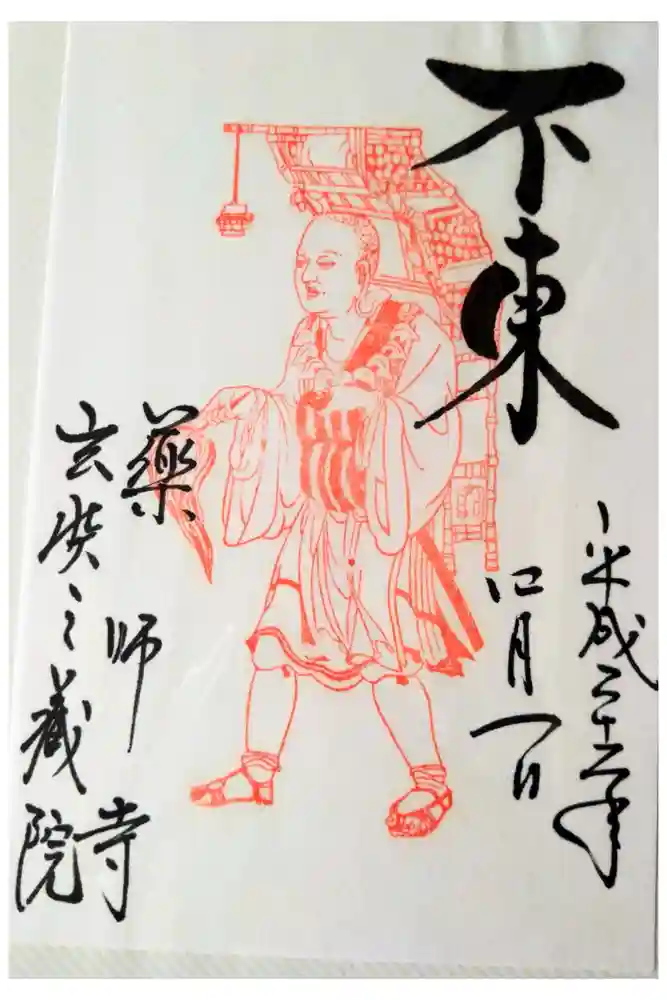 不東
平成二十六年
四月一日
藥師寺
玄奘三蔵院